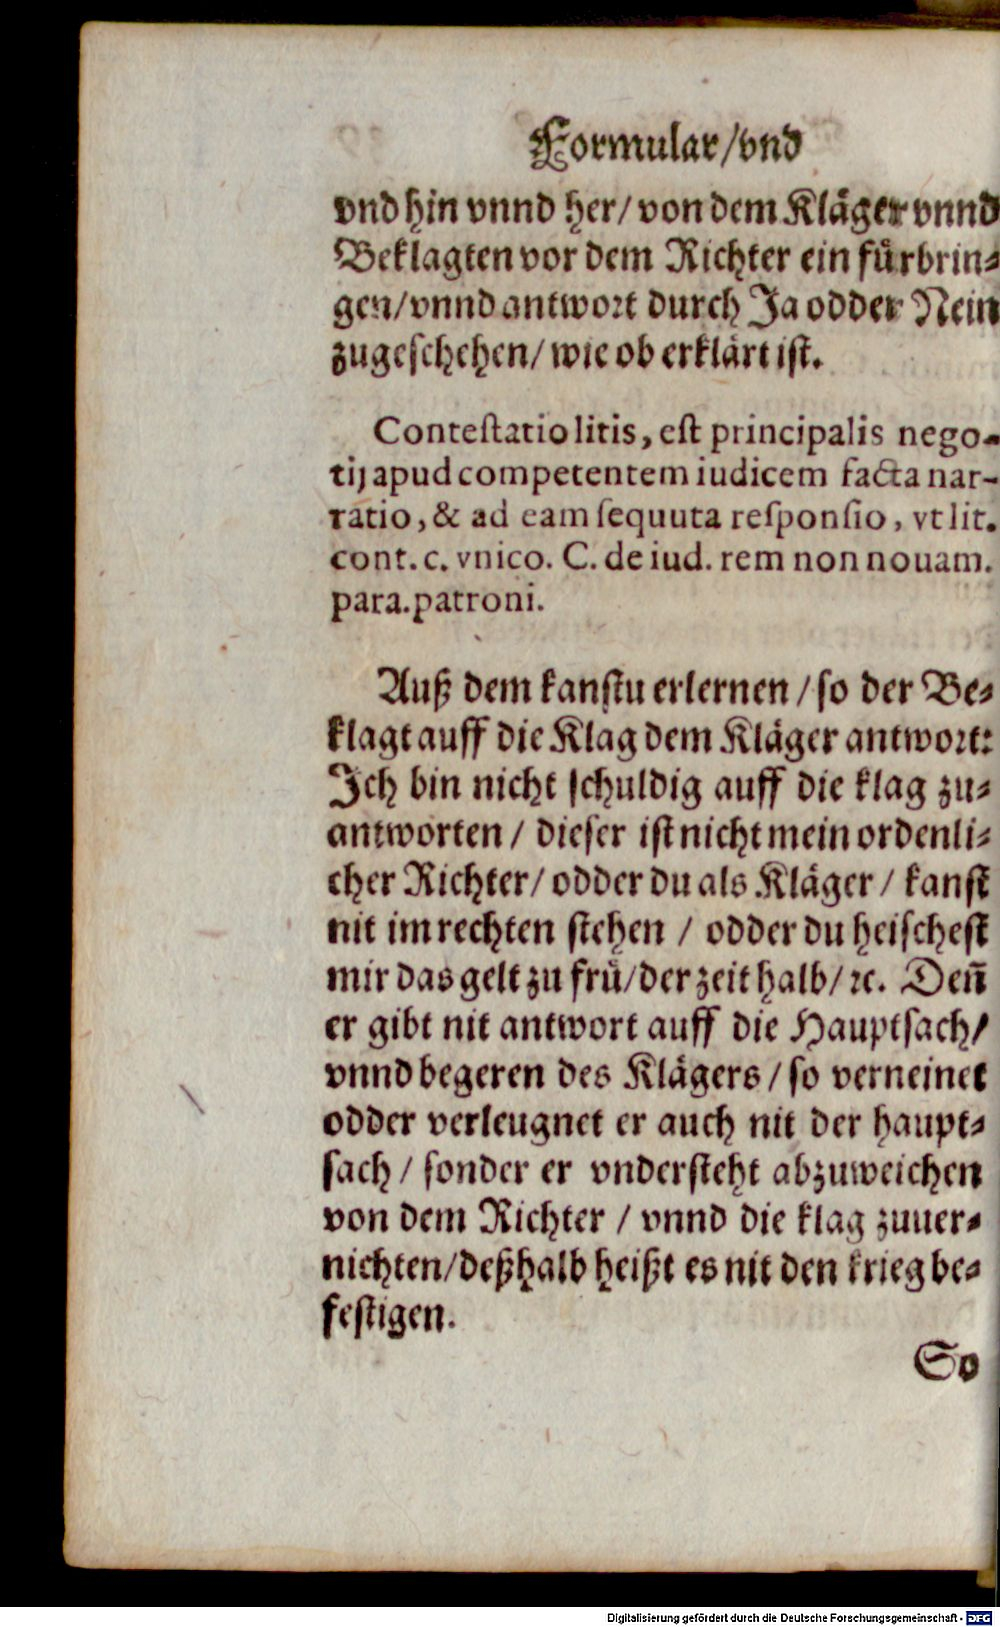 Formular/vnd
vnd hin vnnd her/ von dem Kläger vnnd
Beklagten vor dem Richter ein fürbrin⸗
gen/vnnd antwort durch Ja odder Nein
zugeschehen/ wie ob erklärt ist.
Contestatio litis, est principalis nego-
tij apud competentem iudicem facta nar-
ratio, & ad eam sequuta responsio, vt lit.
cont. c. vnico. C. de iud. rem non nouam.
para. patroni.
Auß dem kanstu erlernen / so der Be⸗
klagt auff die Klag dem Kläger antwort:
Ich bin nicht schuldig auff die klag zu⸗
antworten / dieser ist nicht mein ordenli⸗
cher Richter/ odder du als Kläger / kanst
nit im rechten stehen / odder du heischest
mir das gelt zu frü/der zeit halb/ ꝛc. Deñ
er gibt nit antwort auff die Hauptsach/
vnnd begeren des Klägers / so verneinet
odder verleugnet er auch nit der haupt⸗
sach / sonder er vndersteht abzuweichen
von dem Richter / vnnd die klag zuuer⸗
nichten/deßhalb heißt es nit den krieg be⸗
festigen.
So
Digitalisierung gefördert durch die Deutsche Forschungsgemeinschaft - DFG